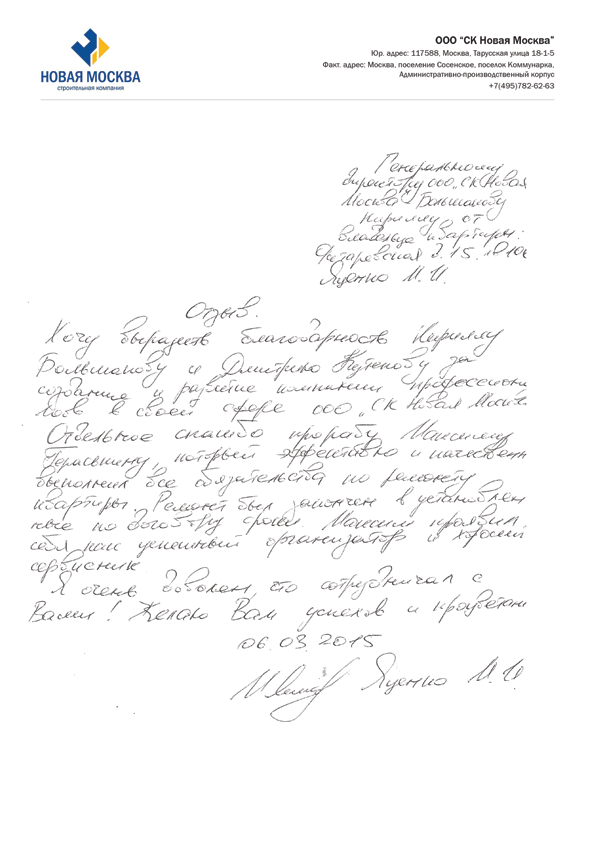 НОВАЯ МОСКВА
строительная компания
ООО “СК Новая Москва”
Юр. адрес: 117588, Москва, Тарусская улица 18-1-5
Факт. адрес: Москва, поселение Сосенское, поселок Коммунарка,
Административно-производственный корпус
+7(495)782-62-63
Генеральному
директору ООО „СК Новая
Москва" Большакову
Кириллу от
владельца квартиры:
д. 15
Яценко М. И.
Отзыв.
Хочу выразить благодарность Кириллу
Большакову и Дмитрию за
создание и развитие компании профессиона
лов в своей сфере ООО „СК Новая Москва
Отдельное спасибо прорабу Максиму
который эффективно и качествен
выполнил все обязательства по ремонту
квартиры. Ремонт был закончен в установлен
ные по договору сроки. Максим проявил
себя как успешный организатор и хороший
сервисник
Я очень доволен, что сотрудничал с
Вами! Желаю Вам успехов и процветани
06.03.2015
Яценко М. И